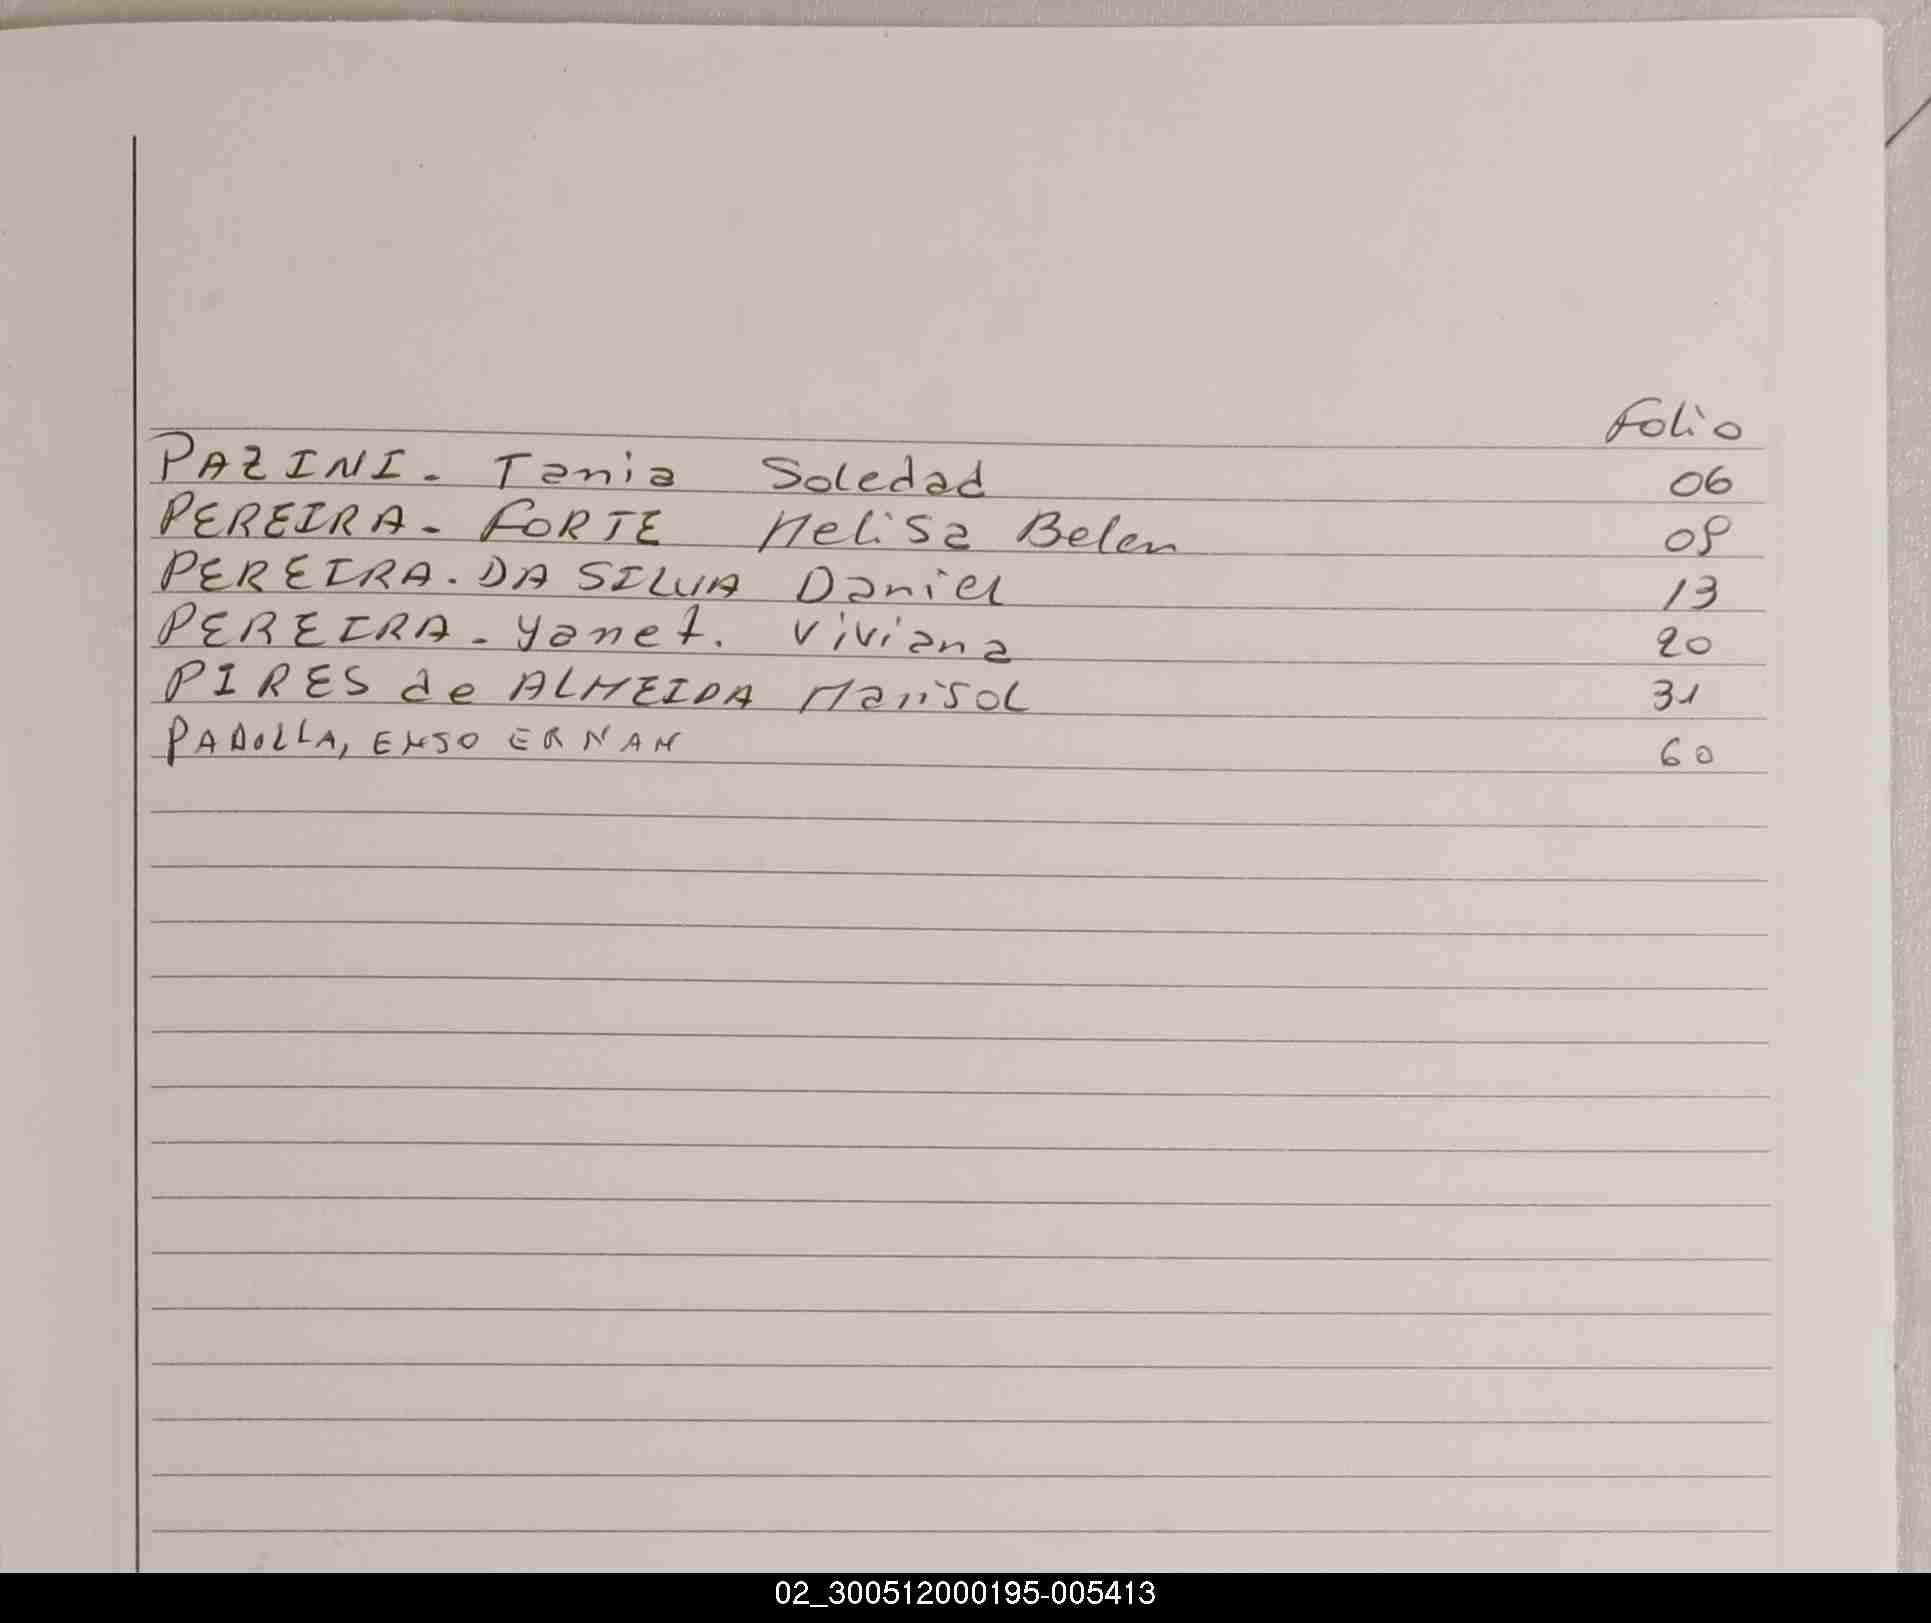 Folio
PAZINI. Tania Soledad 06
PEREIRA. FORTE Melisa Belen 08
PEREIRA. DA SILVA Daniel 13
PEREIRA. Yanet. Viviana 20
PIRES de ALMEIDA Marisol 31
PADOLLA, ENSO ERNAN 60
02_300512000195-005413